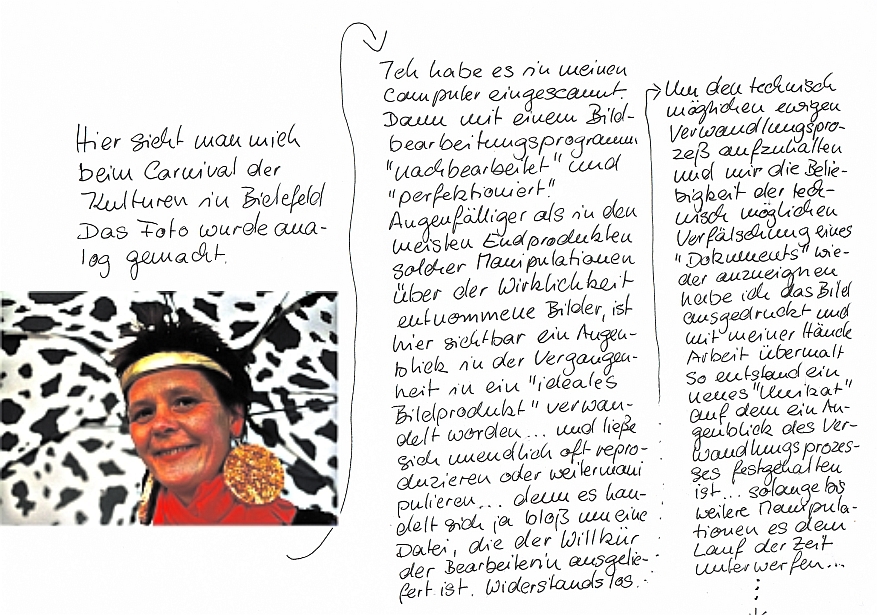 Hier sieht man mich
beim Carnival der
Kulturen in Bielefeld
Das Foto wurde ana-
log gemacht.
Ich habe es in meinen
Computer eingescannt.
Dann mit einem Bild-
bearbeitungsprogramm
"nachbearbeitet" und
"perfektioniert".
Augenfälliger als in den
meisten Endprodukten
solcher Manipulationen
über der Wirklichkeit
entnommene Bilder, ist
hier sichtbar ein Augen-
blick in der Vergangen-
heit in ein "ideales
Bildprodukt" verwan-
delt worden... und ließe
sich unendlich oft repro-
duzieren oder weitermani
pulieren... denn es han-
delt sich ja bloß um eine
Datei, die der Willkür
der Bearbeiterin ausgelie-
fert ist. Widerstandslos...
Um den technisch
möglichen ewigen
Verwandlungspro-
zeß aufzuhalten
und mir die Belie-
bigkeit der tech-
nisch möglichen
Verfälschung eines
"Dokuments" wie-
der anzueignen
habe ich das Bild
ausgedruckt und
mit meiner Hände
Arbeit übermalt
So entstand ein
neues "Unikat"
auf dem ein Au-
genblick des Ver-
wandlungsprozes-
ses festgehalten
ist... solange bis
weitere Manipula-
tionen es dem
Lauf der Zeit
unterwerfen...